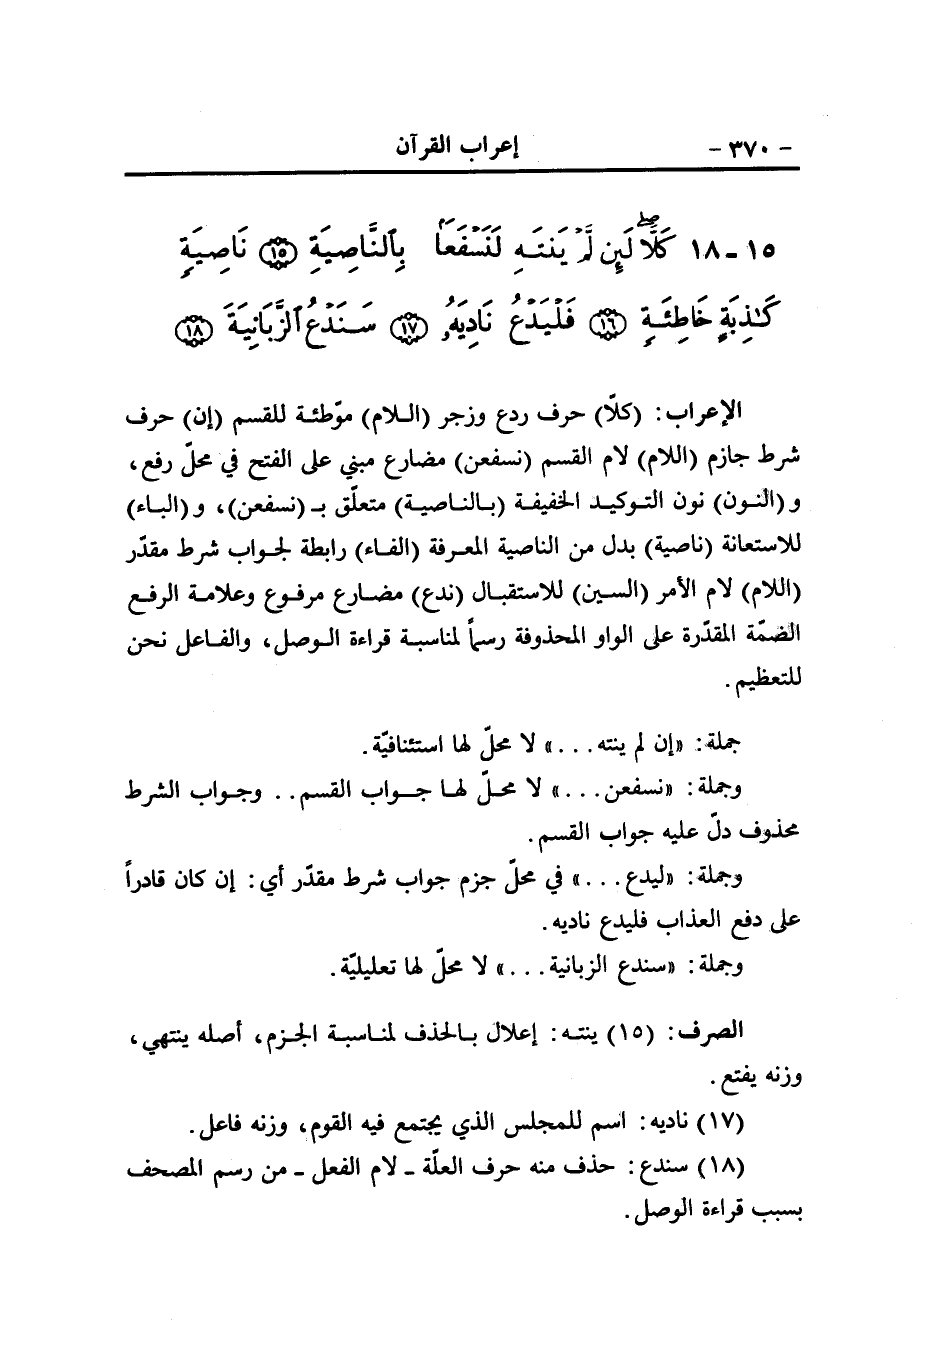 - ٣٧٠ - إعراب القرآن
١٥ - ١٨ كَلَّا لَئِن لَّمْ يَنتَهِ لَنَسْفَعًا بِٱلنَّاصِيَةِ ﴿١٥﴾ نَاصِيَةٍ
كَٰذِبَةٍ خَاطِئَةٍ ﴿١٦﴾ فَلْيَدْعُ نَادِيَهُۥ ﴿١٧﴾ سَنَدْعُ ٱلزَّبَانِيَةَ ﴿١٨﴾
الإعراب: (كلّا) حرف ردع وزجر (اللام) موّطئة للقسم (إن) حرف
شرط جازم (اللام) لام القسم (نسفعن) مضارع مبني على الفتح في محلّ رفع،
و (النون) نون التوكيد الخفيفة (بالناصية) متعلّق بـ (نسفعن)، و (الباء)
للاستعانة (ناصية) بدل من الناصية المعرفة (الفاء) رابطة لجواب شرط مقدّر
(اللام) لام الأمر (السين) للاستقبال (ندع) مضارع مرفوع وعلامة الرفع
الضمّة المقدّرة على الواو المحذوفة رسماً لمناسبة قراءة الوصل، والفاعل نحن
للتعظيم.
جملة: «إن لم ينته...» لا محلّ لها استئنافيّة.
وجملة: «نسفعن...» لا محلّ لها جواب القسم.. وجواب الشرط
محذوف دلّ عليه جواب القسم.
وجملة: «ليدع...» في محلّ جزم جواب شرط مقدّر أي: إن كان قادراً
على دفع العذاب فليدع ناديه.
وجملة: «سندع الزبانية...» لا محلّ لها تعليليّة.
الصرف: (١٥) ينته: إعلال بالحذف لمناسبة الجزم، أصله ينتهي،
وزنه يفتع.
(١٧) ناديه: اسم للمجلس الذي يجتمع فيه القوم، وزنه فاعل.
(١٨) سندع: حذف منه حرف العلّة - لام الفعل - من رسم المصحف
بسبب قراءة الوصل.